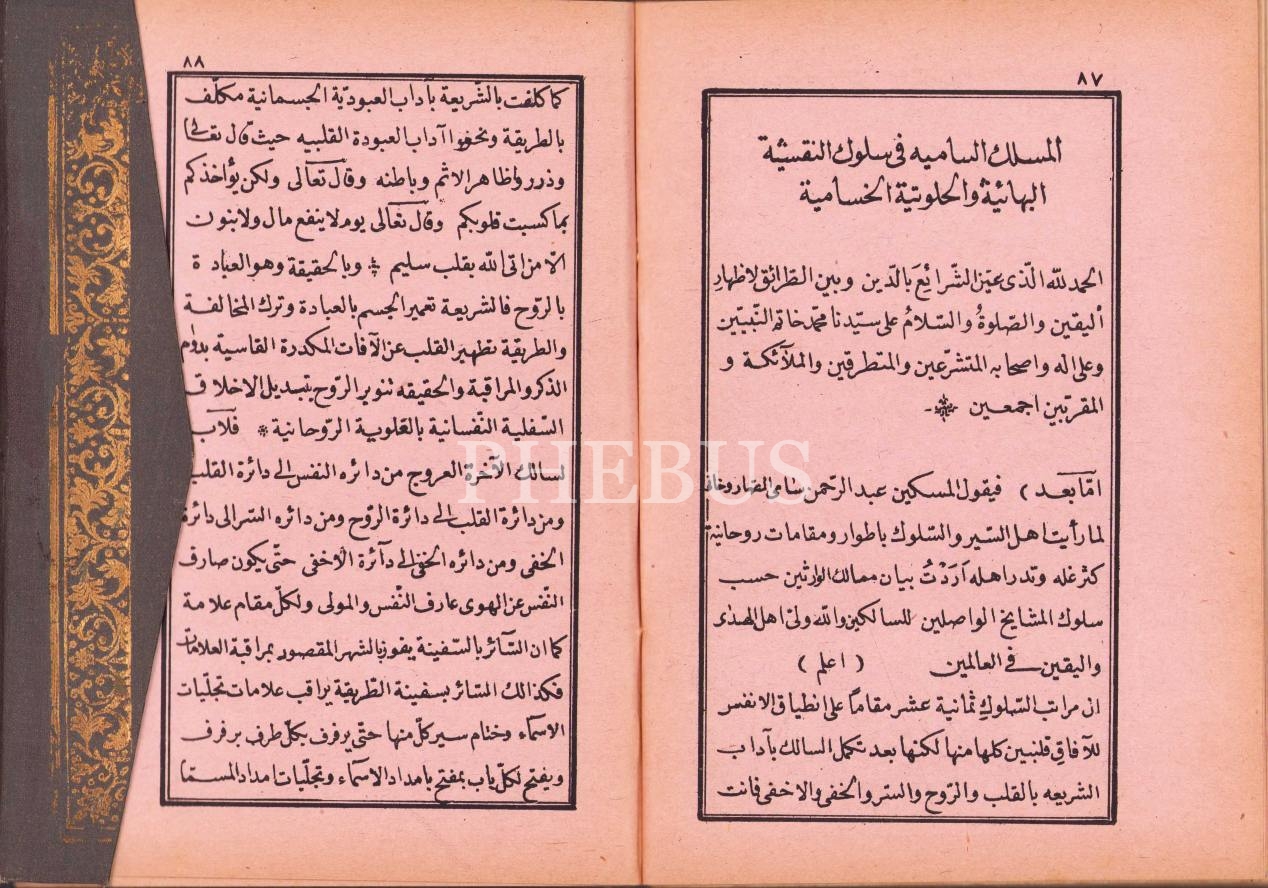 ٨٧
المسلك الساميه فى سلوك النقسثية
البهائية والخلوتية الخسامية
الحمد لله الّذى عيّز الشّرائِعَ بالدّين وبين الطّرائق لاظهارِ
أليقين والصّلوةُ والسّلامُ على سيّدنا محمّد خاتم النّبيّين
وعلى اله واصحابه المتشرّعين والمتطرقين والملآئكة و
المقربّين اجمعين
امّا بعد ) فيقول المسكين عبد الرّحمن سامى
لما رأيت اهل السّير والسّلوك باطوار ومقامات روحانية
كثر غله وتدر اهله اَرَدْتُ بيان ممالك الوارثين حسب
سلوك المشايخ الواصلين للسالكين والله ولىّ اهل الهدٰى
واليقين فى العالمين ( اعلم )
ان مراتب السّلوك ثمانية عشر مقامًا على انطباق الانفس
للآفاق قلنبين كلها منها لكنها بعد تكمل السالك بآداب
الشريعه بالقلب والرّوح والسّر والخفى والاخفى فانت
٨٨
كما كلفت بالشّريعة بآداب العبوديّة الجسمانية مكلّف
بالطريقة ونحوا آداب العبودة القلبيه حيث قال تعالىٰ
وذرر واظاهر الاثم وباطنه وقال تعالى ولكن يؤاخذكم
بما كسبت قلوبكم وقال تعالى يوم لا ينفع مال ولا بنون
الّا من اتى الله بقلب سليم وبالحقيقة وهو العبادة
بالرّوح فالشريعة تعمير الجسم بالعبادة وترك المخالفة
والطريقة تطهير القلب عن الآفات المكدرة القاسية بدوام
الذكر والمراقبة والحقيقه تنوير الرّوح بتبديل الاخلاق
السّفلية النّفسانية بالعلوية الرّوحانية فلابّ
لسالك الآخرة العروج من دائره النفس الى دائرة القلب
ومن دائرة القلب الى دائرة الرّوح ومن دائره السّر الى دائرة
الخفى ومن دائره الخفى الى دآئرة الاخفى حتّى يكون صارف
النّفس عن الهوى عارف النّفس والمولى ولكلّ مقام علامة
كما ان السّآئر بالسّفينة يفوز بالشهر المقصور بمراقبة العلامات
فكذالك السّائر بسفينة الطّريقة يراقب علامات تجلّيات
الاسمآء وختام سير كلّ منها حتّى يرفرف بكلّ طرف برفرف
ويفتح لكلّ باب بمفتح بامداد الاسمآء وتجلّيات امداد المسمّا
PHEBUS